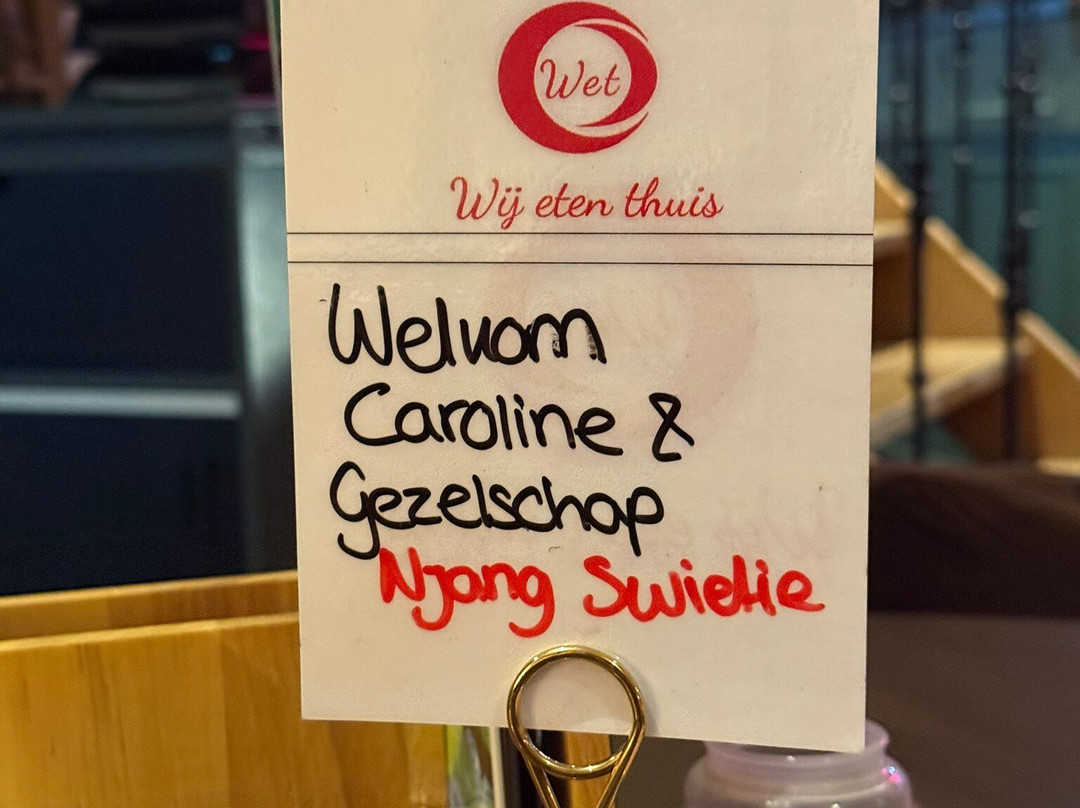 Wet
Wij eten thuis
Welkom
Caroline &
Gezelschap
Njang Swietie